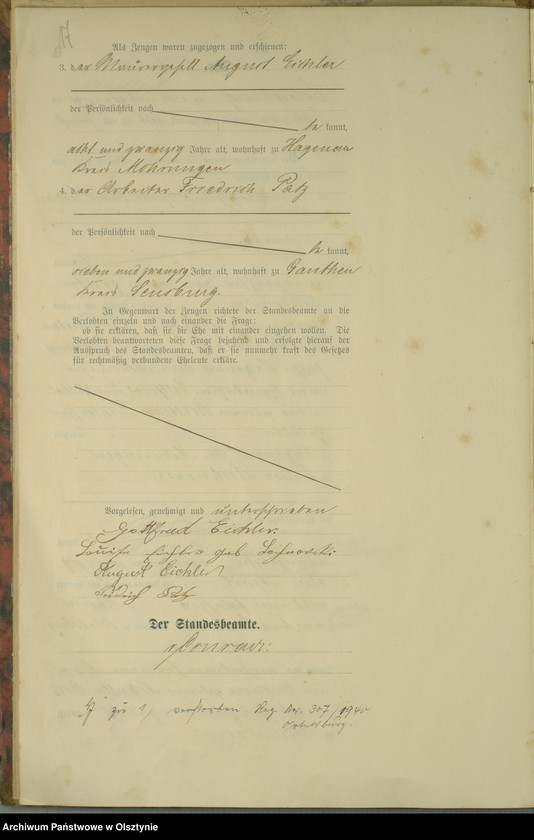 Als Zeugen waren zugezogen und erschienen:
3. der Maurergesell August Eichler
der Persönlichkeit nach
be kannt,
acht und zwanzig Jahre alt, wohnhaft zu Hagenau
Kreis Mohrungen
4. der Arbeiter Friedrich Patz
der Persönlichkeit nach
be kannt,
sieben und zwanzig Jahre alt, wohnhaft zu Ganthen
Kreis Sensburg.
In Gegenwart der Zeugen richtete der Standesbeamte an die
Verlobten einzeln und nach einander die Frage:
ob sie erklären, daß sie die Ehe mit einander eingehen wollen. Die
Verlobten beantworteten diese Frage bejahend und erfolgte hierauf der
Ausspruch des Standesbeamten, daß er sie nunmehr kraft des Gesetzes
für rechtmäßig verbundene Eheleute erkläre.
Vorgelesen, genehmigt und unterschrieben
Gottfried Eichler.
Louise Eichler geb
August Eichler
Friedrich Patz
Der Standesbeamte.
Conrad.
zu 1, verstorben Reg. No. 307/1940
Ortelsburg.
Archiwum Państwowe w Olsztynie